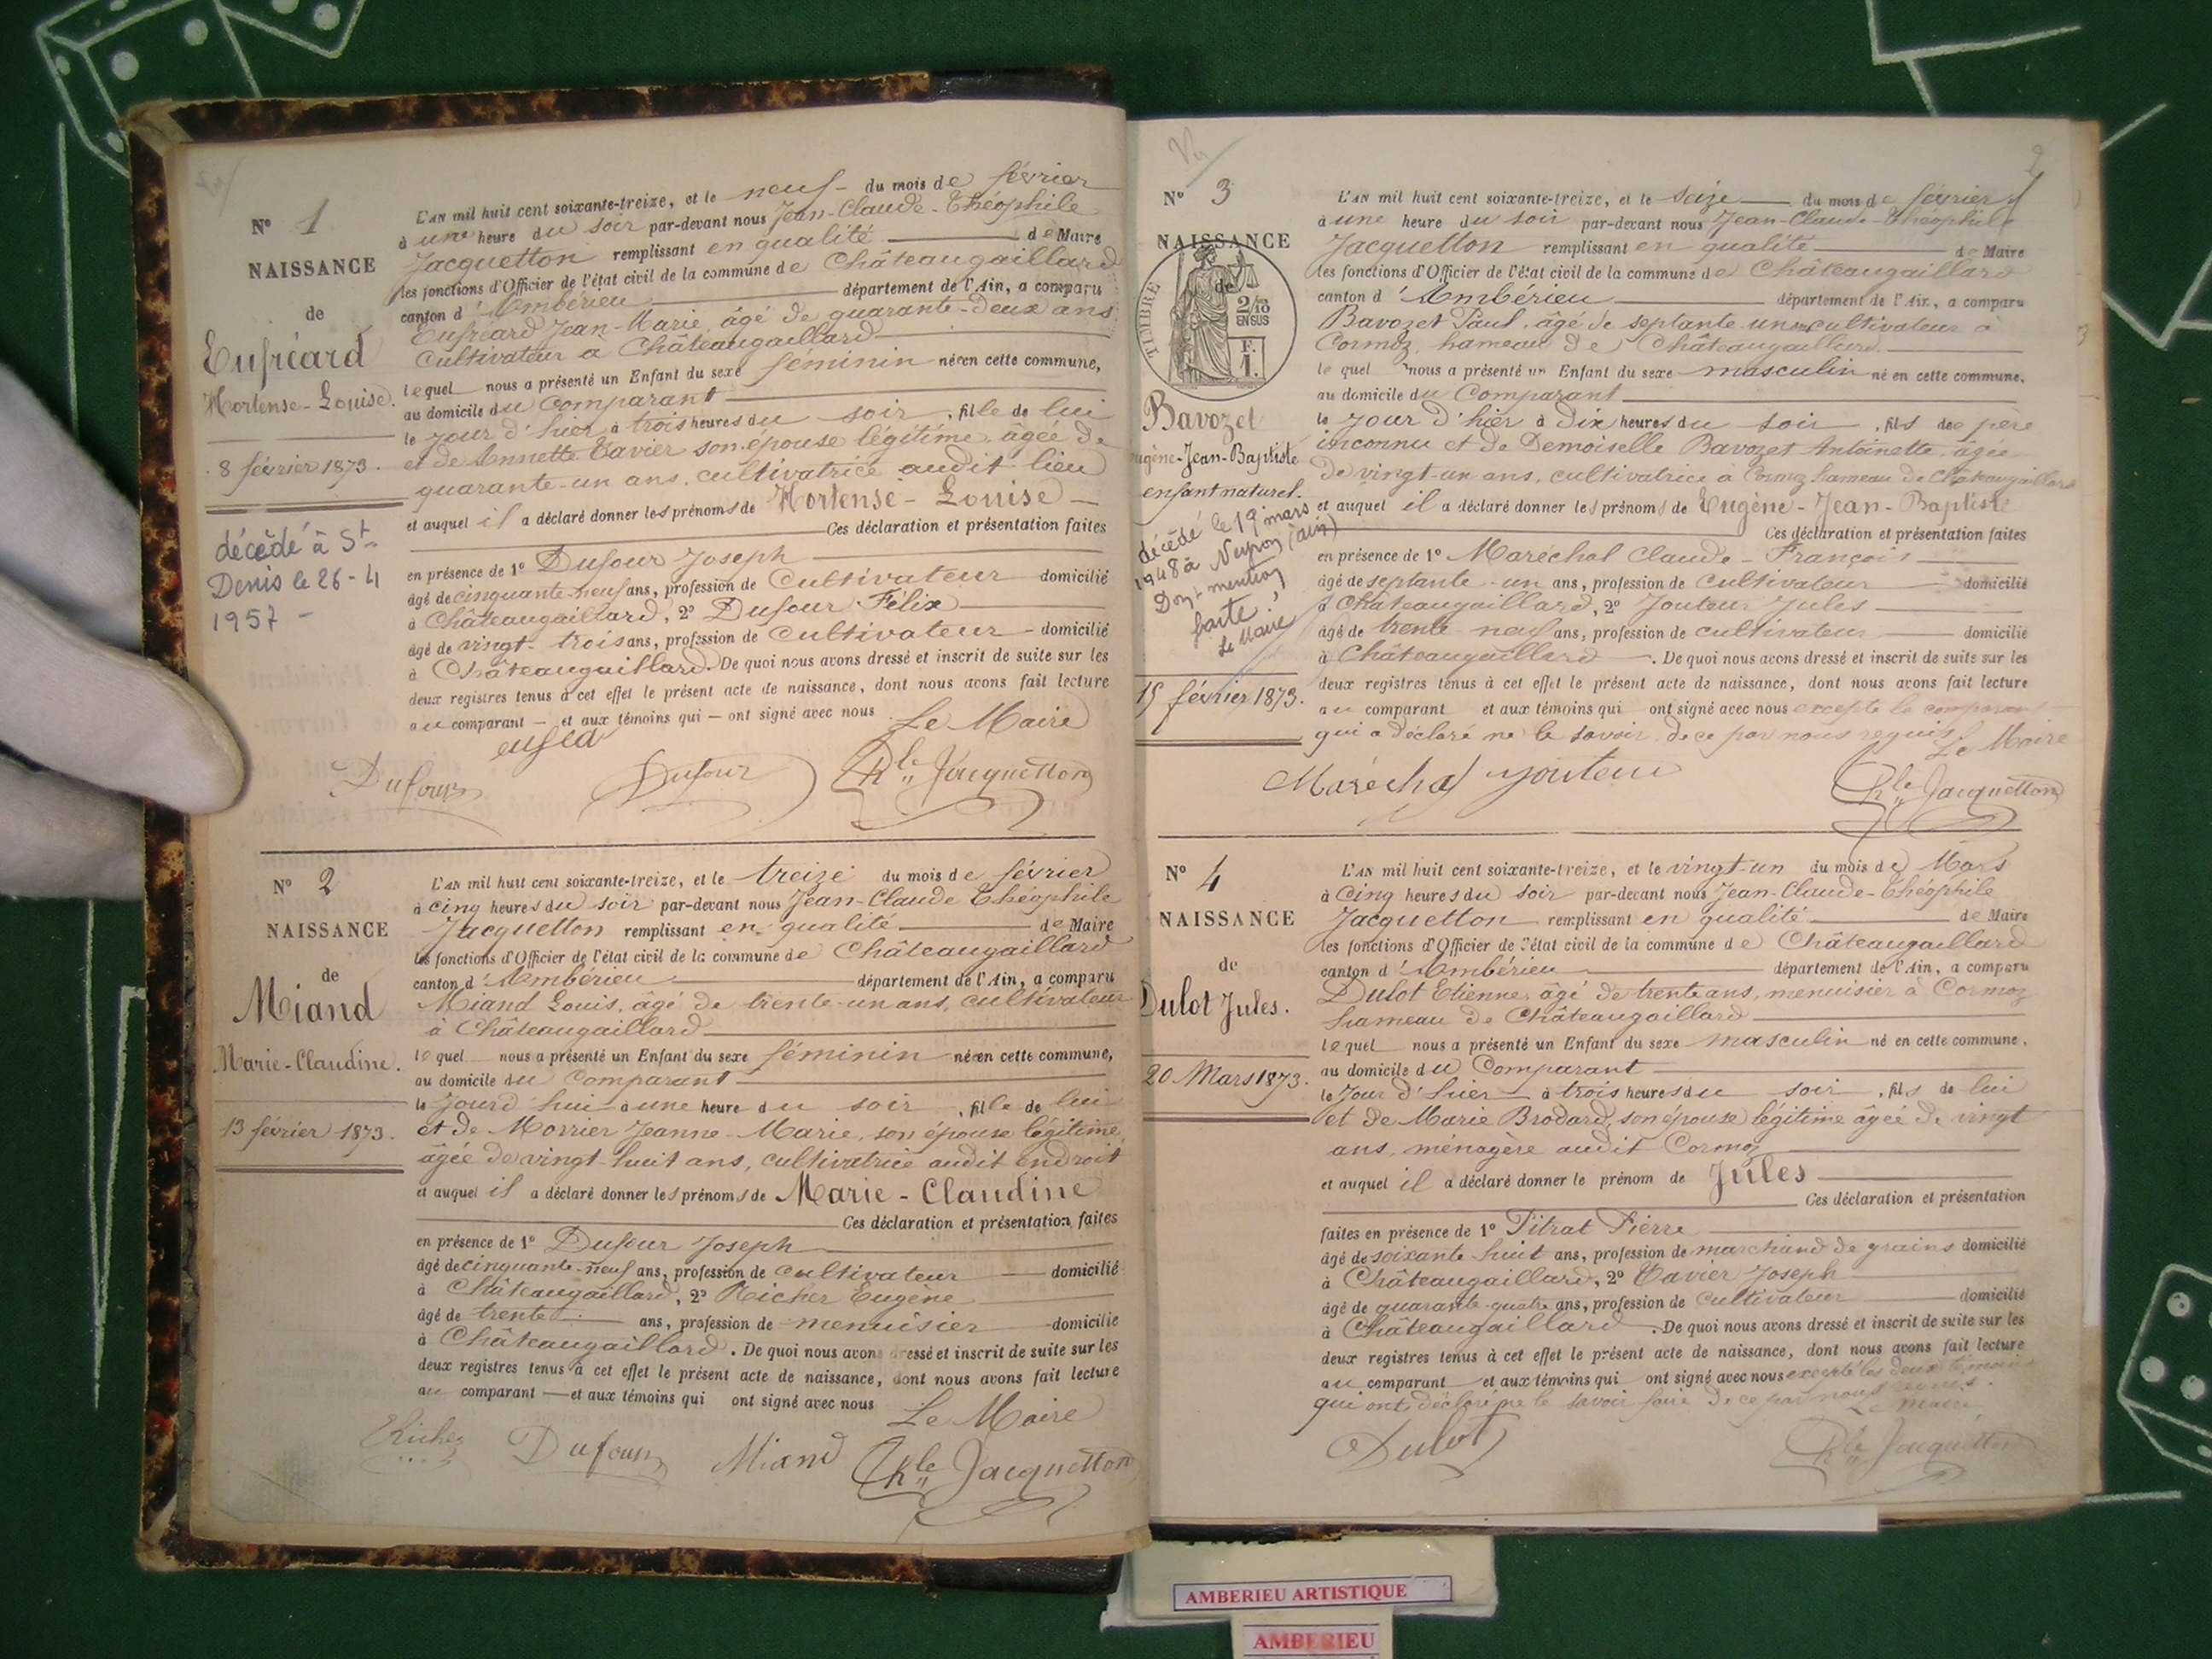 Nº 1
NAISSANCE
de
Eufréard
Hortense-Louise.
8 février 1873.
décédé à St
Denis le 26-4
1957 -
L'AN mil huit cent soixante-treize, et le neuf - du mois de février
à une heure du soir par-devant nous Jean-Claude-Théophile
Jacquetton remplissant en qualité de Maire
les fonctions d'Officier de l'état civil de la commune de Châteaugaillard
canton d'Ambérieu département de l'Ain, a comparu
Eufréard Jean-Marie, âgé de quarante-deux ans
Cultivateur à Châteaugaillard
lequel nous a présenté un Enfant du sexe féminin née en cette commune,
au domicile du Comparant
le jour d'hier à trois heures du soir, fille de lui
et de Annette Tavier son épouse légitime, âgée de
quarante-un ans, cultivatrice audit lieu
et auquel il a déclaré donner les prénoms de Hortense-Louise
Ces déclaration et présentation faites
en présence de 1º Dufour Joseph
âgé de cinquante-neuf ans, profession de Cultivateur domicilié
à Châteaugaillard, 2º Dufour Félix
âgé de vingt-trois ans, profession de Cultivateur - domicilié
à Châteaugaillard. De quoi nous avons dressé et inscrit de suite sur les
deux registres tenus à cet effet le présent acte de naissance, dont nous avons fait lecture
au comparant — et aux témoins qui — ont signé avec nous
Le Maire
Dufour Dufour Jacquetton
Nº 2
NAISSANCE
de
Miand
Marie-Claudine.
13 février 1873.
L'AN mil huit cent soixante-treize, et le treize du mois de février
à cinq heures du soir par-devant nous Jean-Claude Théophile
Jacquetton remplissant en qualité de Maire
les fonctions d'Officier de l'état civil de la commune de Châteaugaillard
canton d'Ambérieu département de l'Ain, a comparu
Miand Louis, âgé de trente-un ans, cultivateur
à Châteaugaillard
lequel nous a présenté un Enfant du sexe féminin née en cette commune,
au domicile du Comparant
le jourd'hui à une heure du soir, fille de lui
et de Morrier Jeanne-Marie, son épouse légitime,
âgée de vingt-huit ans, cultivatrice audit endroit
et auquel il a déclaré donner les prénoms de Marie-Claudine
Ces déclaration et présentation faites
en présence de 1º Dufour Joseph
âgé de cinquante-neuf ans, profession de cultivateur domicilié
à Châteaugaillard, 2º Richer Eugène
âgé de trente ans, profession de menuisier domicilié
à Châteaugaillard. De quoi nous avons dressé et inscrit de suite sur les
deux registres tenus à cet effet le présent acte de naissance, dont nous avons fait lecture
au comparant — et aux témoins qui ont signé avec nous
Le Maire
Richer Dufour Miand Jacquetton
2
Nº 3
NAISSANCE
de
TIMBRE
2/10
EN SUS
F.
1.
Bavozet
Eugène-Jean-Baptiste
enfant naturel.
décédé le 19 mars
1948 à Neyron (ain)
Dont mention
faite,
Le Maire
15 février 1873.
L'AN mil huit cent soixante-treize, et le seize du mois de février
à une heure du soir par-devant nous Jean-Claude-Théophile
Jacquetton remplissant en qualité de Maire
les fonctions d'Officier de l'état civil de la commune de Châteaugaillard
canton d'Ambérieu département de l'Ain, a comparu
Bavozet Paul, âgé de septante un ans cultivateur à
Cormoz, hameau de Châteaugaillard
lequel nous a présenté un Enfant du sexe masculin né en cette commune,
au domicile du Comparant
le jour d'hier à dix heures du soir, fils de père
inconnu et de Demoiselle Bavozet Antoinette, âgée
de vingt-un ans, cultivatrice à Cormoz hameau de Châteaugaillard
et auquel il a déclaré donner les prénoms de Eugène-Jean-Baptiste
Ces déclaration et présentation faites
en présence de 1º Maréchal Claude-François
âgé de septante-un ans, profession de cultivateur domicilié
à Châteaugaillard, 2º Jouteur Jules
âgé de trente neuf ans, profession de cultivateur domicilié
à Châteaugaillard. De quoi nous avons dressé et inscrit de suite sur les
deux registres tenus à cet effet le présent acte de naissance, dont nous avons fait lecture
au comparant et aux témoins qui ont signé avec nous excepté le comparant
qui a déclaré ne le savoir, de ce par nous requis
Le Maire
Maréchal Jouteur Jacquetton
Nº 4
NAISSANCE
de
Dulot Jules.
20 Mars 1873.
L'AN mil huit cent soixante-treize, et le vingt-un du mois de Mars
à cinq heures du soir par-devant nous Jean-Claude-Théophile
Jacquetton remplissant en qualité de Maire
les fonctions d'Officier de l'état civil de la commune de Châteaugaillard
canton d'Ambérieu département de l'Ain, a comparu
Dulot Etienne, âgé de trente ans, menuisier à Cormoz
hameau de Châteaugaillard
lequel nous a présenté un Enfant du sexe masculin né en cette commune,
au domicile du Comparant
le jour d'hier à trois heures du soir, fils de lui
et de Marie Brodard, son épouse légitime âgée de vingt
ans, ménagère audit Cormoz
et auquel il a déclaré donner le prénom de Jules
Ces déclaration et présentation
faites en présence de 1º Pitrat Pierre
âgé de soixante huit ans, profession de marchand de grains domicilié
à Châteaugaillard, 2º Tavier Joseph
âgé de quarante-quatre ans, profession de Cultivateur domicilié
à Châteaugaillard. De quoi nous avons dressé et inscrit de suite sur les
deux registres tenus à cet effet le présent acte de naissance, dont nous avons fait lecture
au comparant et aux témoins qui ont signé avec nous excepté les deux témoins
qui ont déclaré ne le savoir faire de ce par nous requis.
Le Maire
Dulot Jacquetton
AMBERIEU ARTISTIQUE
AMBERIEU